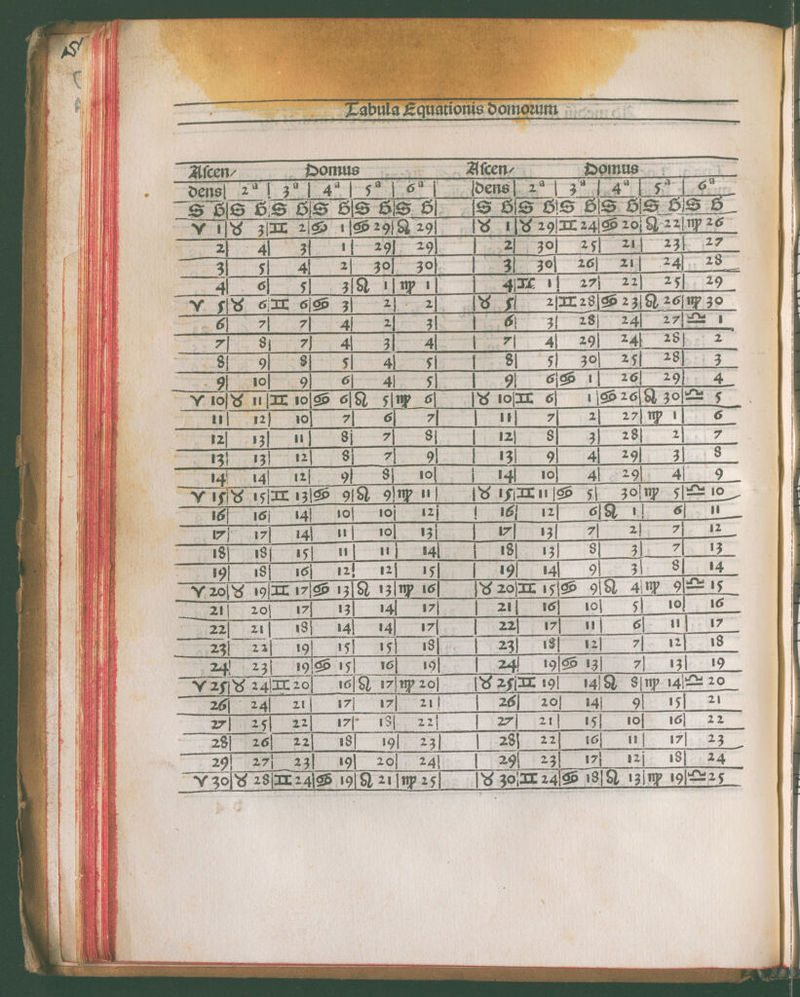 Tabula Equationis domorum
Ascen/ Domus Ascen/ Domus
dens 2ª 3ª 4ª 5ª 6ª dens 2ª 3ª 4ª 5ª 6ª
S G S G S G S G S G S G S G S G S G S G S G S G
♈ 1 ♉ 3 ♊ 2 ♋ 1 ♋ 29 ♌ 29 ♉ 1 ♉ 29 ♊ 24 ♋ 20 ♌ 22 ♍ 26
2 4 3 1 29 29 2 30 25 21 23 27
3 5 4 2 30 30 3 30 26 21 24 28
4 6 5 3 ♌ 1 ♍ 1 4 ♊ 1 27 22 25 29
♈ 5 ♉ 6 ♊ 6 ♋ 3 2 2 ♉ 5 2 ♊ 28 ♋ 23 ♌ 26 ♍ 30
6 7 7 4 2 3 6 3 28 24 27 ♎ 1
7 8 7 4 3 4 7 4 29 24 28 2
8 9 8 5 4 5 8 5 30 25 28 3
9 10 9 6 4 5 9 6 ♋ 1 26 29 4
♈ 10 ♉ 11 ♊ 10 ♋ 6 ♌ 5 ♍ 6 ♉ 10 ♊ 6 1 ♋ 26 ♌ 30 ♎ 5
11 12 10 7 6 7 11 7 2 27 ♍ 1 6
12 13 11 8 7 8 12 8 3 28 2 7
13 13 12 8 7 9 13 9 4 29 3 8
14 14 12 9 8 10 14 10 4 29 4 9
♈ 15 ♉ 15 ♊ 13 ♋ 9 ♌ 9 ♍ 11 ♉ 15 ♊ 11 ♋ 5 30 ♍ 5 ♎ 10
16 16 14 10 10 12 16 12 6 ♌ 1 6 11
17 17 14 11 10 13 17 13 7 2 7 12
18 18 15 11 11 14 18 13 8 3 7 13
19 18 16 12 12 15 19 14 9 3 8 14
♈ 20 ♉ 19 ♊ 17 ♋ 13 ♌ 13 ♍ 16 ♉ 20 ♊ 15 ♋ 9 ♌ 4 ♍ 9 ♎ 15
21 20 17 13 14 17 21 16 10 5 10 16
22 21 18 14 14 17 22 17 11 6 11 17
23 22 19 15 15 18 23 18 12 7 12 18
24 23 19 ♋ 15 16 19 24 19 ♋ 13 7 13 19
♈ 25 ♉ 24 ♊ 20 16 ♌ 17 ♍ 20 ♉ 25 ♊ 19 14 ♌ 8 ♍ 14 ♎ 20
26 24 21 17 17 21 26 20 14 9 15 21
27 25 22 17 18 22 27 21 15 10 16 22
28 26 22 18 19 23 28 22 16 11 17 23
29 27 23 19 20 24 29 23 17 12 18 24
♈ 30 ♉ 28 ♊ 24 ♋ 19 ♌ 21 ♍ 25 ♉ 30 ♊ 24 ♋ 18 ♌ 13 ♍ 19 ♎ 25